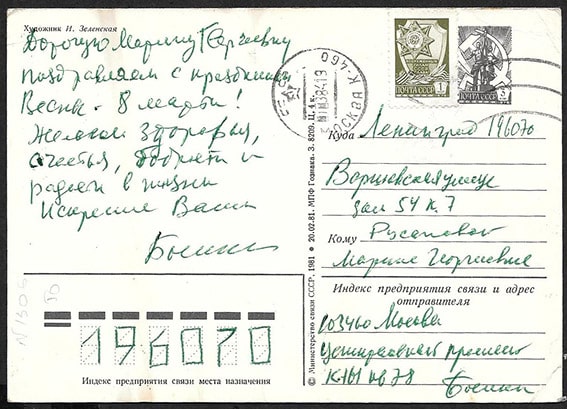 Художник И. Зеленская
Дорогую Марину Георгиевну
поздравляем с праздником
Весны - 8 марта!
Желаем здоровья,
счастья, бодрости и
радости в жизни
Искренне Ваши
ПОЧТА СССР 1
ПОЧТА СССР
МОСКВА К-460
Куда Ленинград 196070
улица
дом 54 к. 7
Кому
Марине Георгиевне
Индекс предприятия связи и адрес
отправителя
103460 Москва
кв 78
196070
Индекс предприятия связи места назначения
© Министерство связи СССР, 1981 ● 20.02.81. МПФ Гознака. З. 8209. Ц. 4 к.